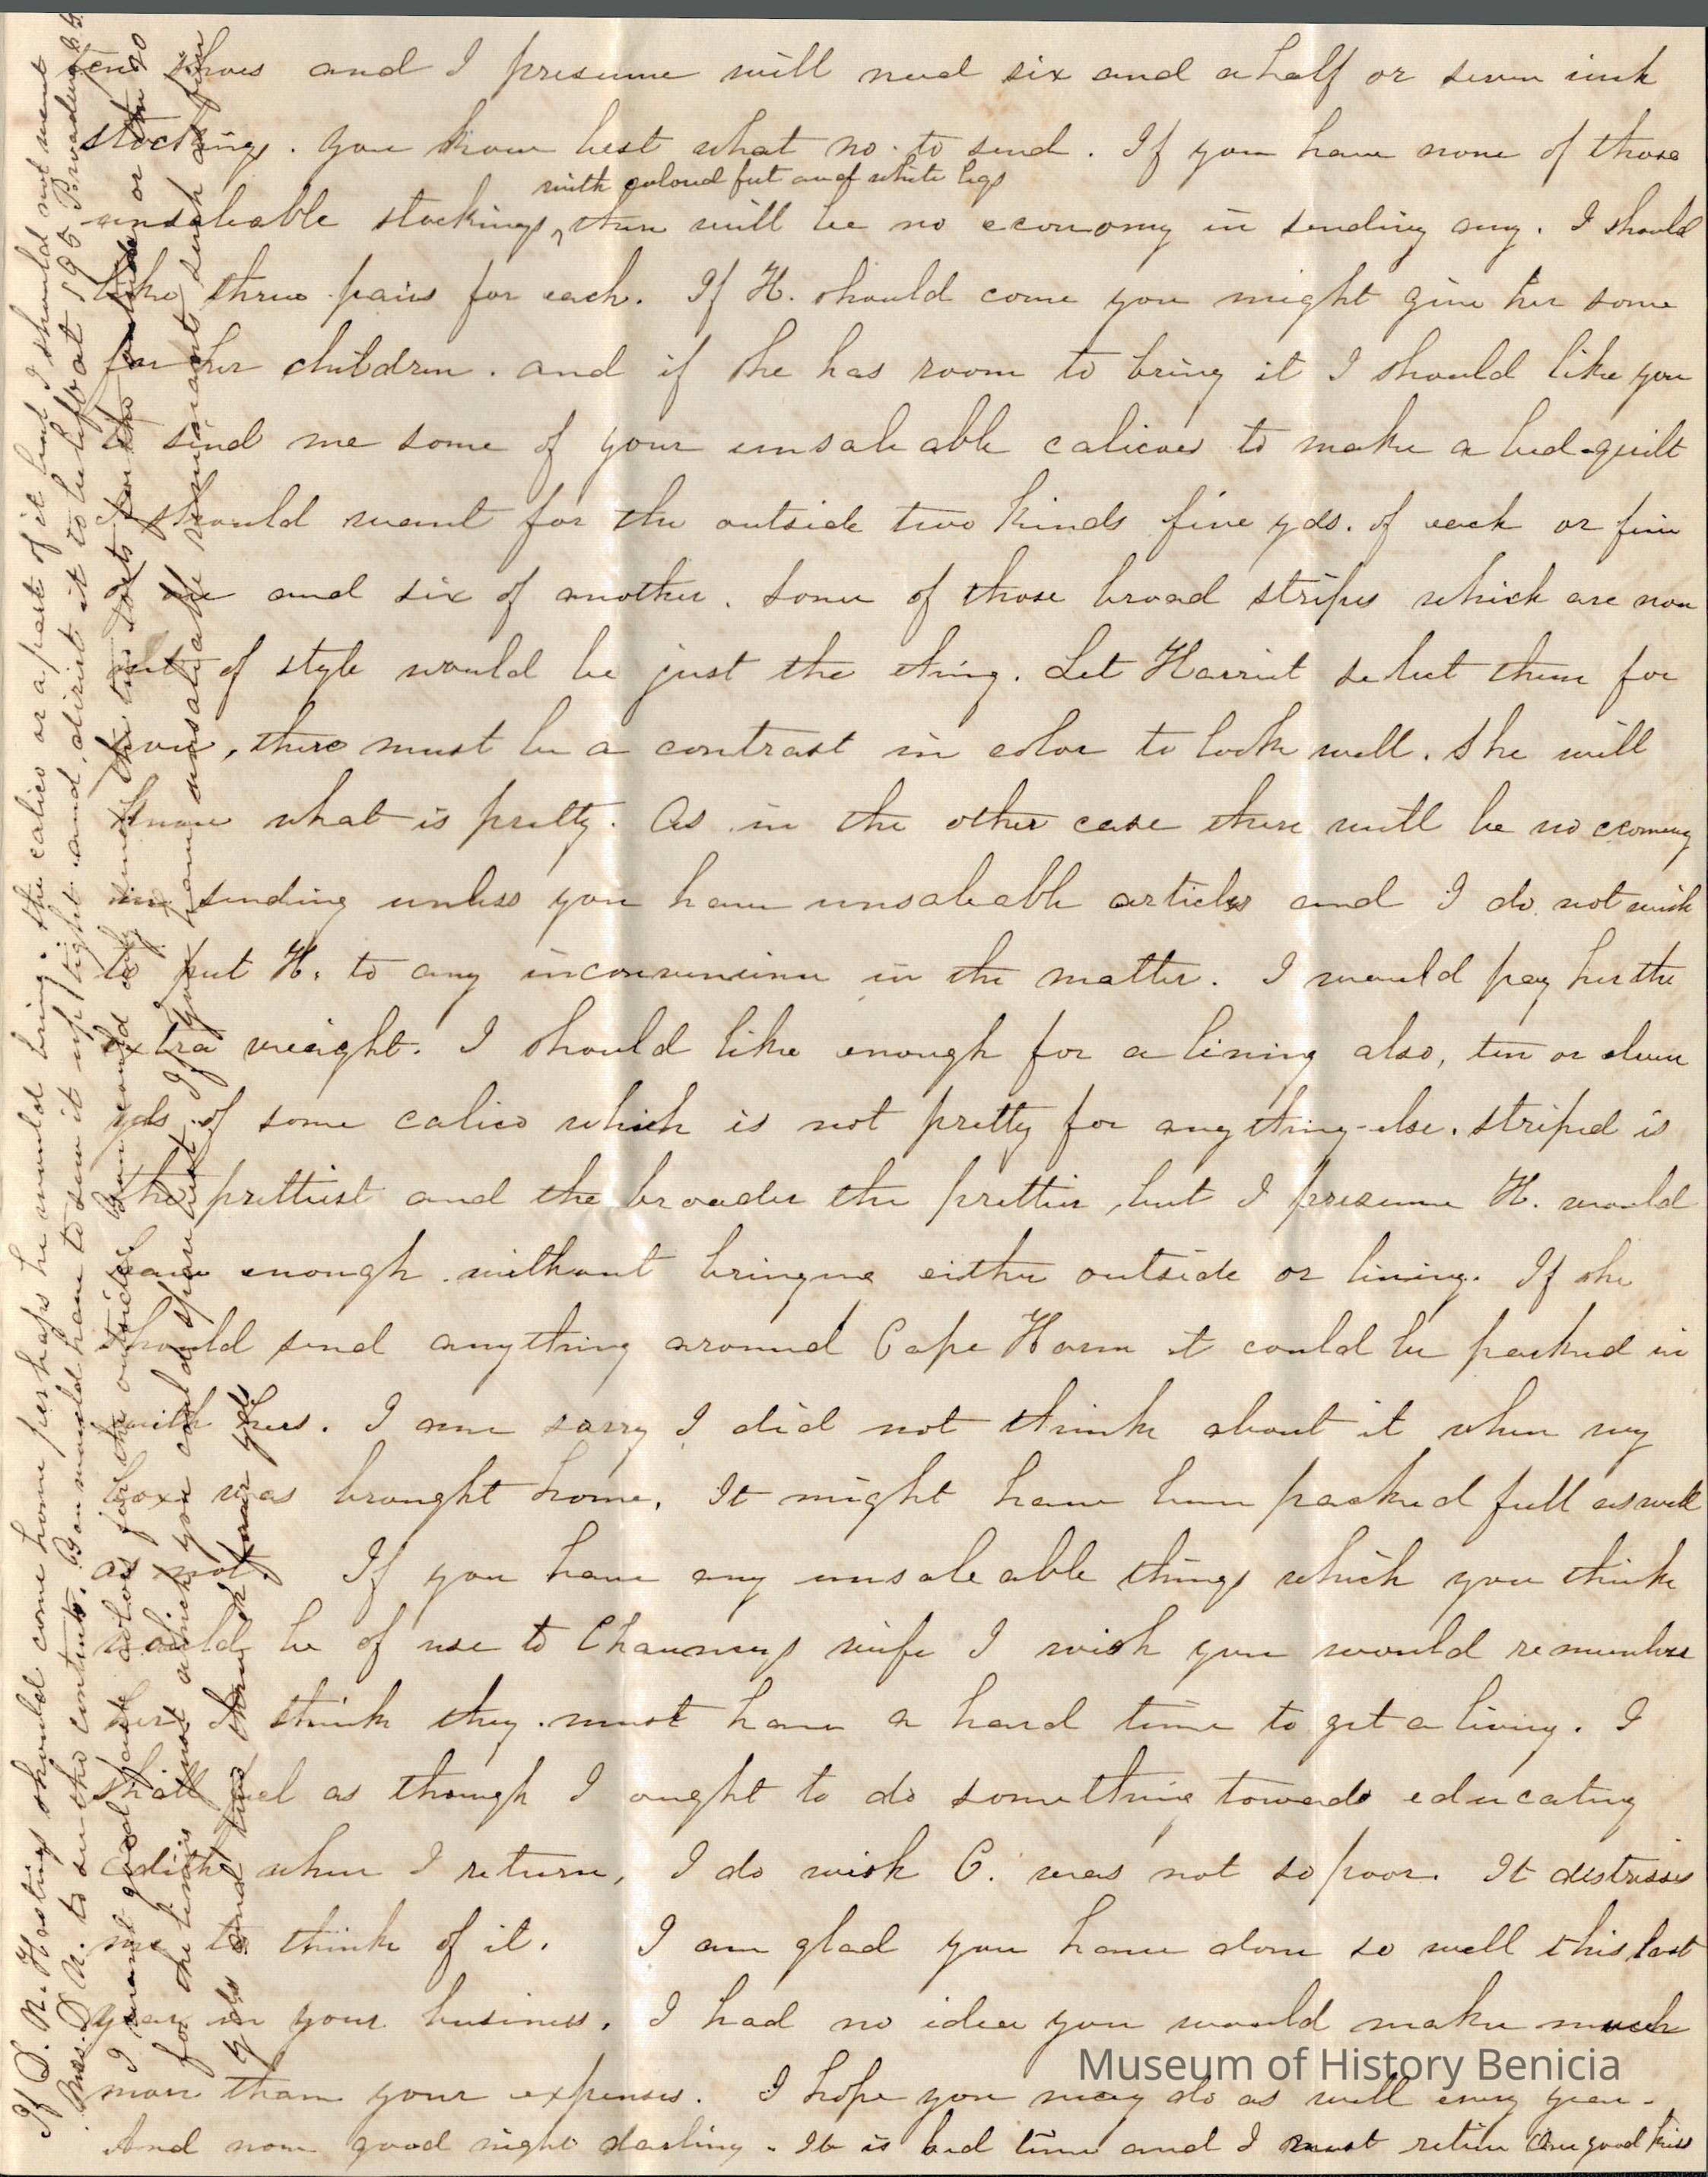 ten shoes and I presume will need six and a half or seven inch
stockings. You know best what no. to send. If you have none of those
with colored feet and white legs
unsaleable stockings, there will be no economy in sending any. I should
like three pairs for each. If H. should come you might give her some
for her children. and if she has room to bring it I should like you
to send me some of your unsaleable calicoes to make a bed-quilt
I should want for the outside two kinds five yds. of each or five
of one and six of another. Some of those broad stripes which are now
out of style would be just the thing. Let Harriet select them for
you, there must be a contrast in color to look well. She will
know what is pretty. As in the other case there will be no economy
in sending unless you have unsaleable articles and I do not wish
to put H. to any inconvenience in the matter. I would pay her the
extra weight. I should like enough for a lining also, ten or eleven
yds of some calico which is not pretty for anything else. striped is
the prettiest and the broader the prettier, but I presume H. would
have enough without bringing either outside or lining. If she
should send anything around Cape Horn it could be packed in
with hers. I am sorry I did not think about it when my
box was brought home. It might have been packed full as well
as not. If you have any unsaleable things which you think
would be of use to Chaunceys wife I wish you would remember
her. I think they must have a hard time to get a living. I
shall feel as though I ought to do something towards educating
Edith when I return, I do wish C. was not so poor. It distresses
me to think of it. I am glad you have done so well this last
year in your business. I had no idea you would make much
more than your expenses. I hope you may do as well every year.
And now good night darling. It is bed time and I must retire One good kiss
If D. N. Hastings should come home perhaps he would bring the calico or a part of it but I should not want
Mrs. D. N. to see the contents. You would have to sew it up tight and direct it to be left at 195 Broadway
I want good fast colors for the outside.
for the lining not which you could spare best. If you have unsaleable remnants such as four
yds and two three or four yds
Museum of History Benicia